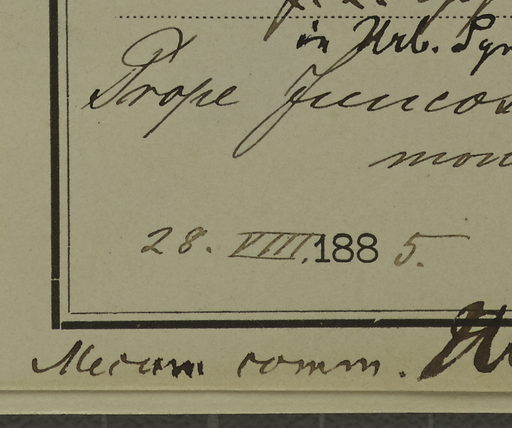 in Urb. Syn
Prope Juncos
mon
28. VIII. 1885.
Mecum comm.